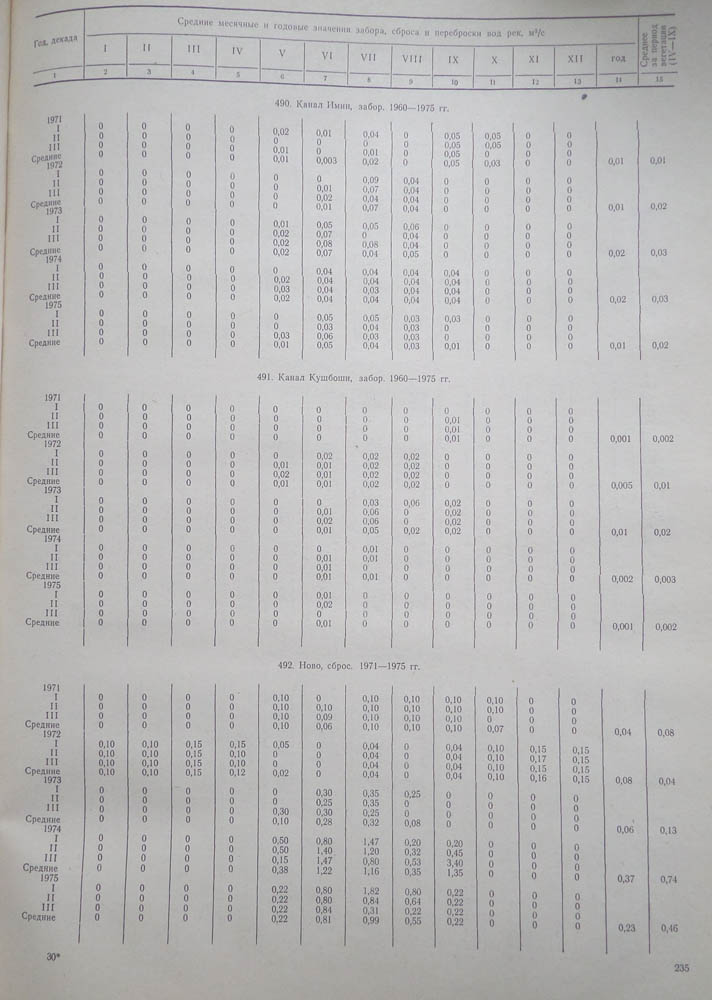 Год, декада | Средние месячные и годовые значения забора, сброса и переброски вод рек, м³/с | Среднее за период вегетации (IV—IX)
I II III IV V VI VII VIII IX X XI XII год
1 2 3 4 5 6 7 8 9 10 11 12 13 14 15
490. Канал Имни, забор. 1960—1975 гг.
1971
I 0 0 0 0 0,02 0,01 0,04 0 0,05 0,05 0 0
II 0 0 0 0 0 0 0 0 0,05 0,05 0 0
III 0 0 0 0 0,01 0 0,01 0 0,05 0 0 0
Средние 0 0 0 0 0,01 0,003 0,02 0 0,05 0,03 0 0 0,01 0,01
1972
I 0 0 0 0 0 0 0,09 0,04 0 0 0 0
II 0 0 0 0 0 0,01 0,07 0,04 0 0 0 0
III 0 0 0 0 0 0,02 0,04 0,04 0 0 0 0
Средние 0 0 0 0 0 0,01 0,07 0,04 0 0 0 0 0,01 0,02
1973
I 0 0 0 0 0,01 0,05 0,05 0,06 0 0 0 0
II 0 0 0 0 0,02 0,07 0 0,04 0 0 0 0
III 0 0 0 0 0,02 0,08 0,08 0,04 0 0 0 0
Средние 0 0 0 0 0,02 0,07 0,04 0,05 0 0 0 0 0,02 0,03
1974
I 0 0 0 0 0 0,04 0,04 0,04 0,04 0 0 0
II 0 0 0 0 0,02 0,04 0,04 0,04 0,04 0 0 0
III 0 0 0 0 0,03 0,04 0,03 0,04 0,04 0 0 0
Средние 0 0 0 0 0,02 0,04 0,04 0,04 0,04 0 0 0 0,02 0,03
1975
I 0 0 0 0 0 0,05 0,05 0,03 0,03 0 0 0
II 0 0 0 0 0 0,03 0,04 0,03 0 0 0 0
III 0 0 0 0 0,03 0,06 0,03 0,03 0 0 0 0
Средние 0 0 0 0 0,01 0,05 0,04 0,03 0,01 0 0 0 0,01 0,02
491. Канал Кушбоши, забор. 1960—1975 гг.
1971
I 0 0 0 0 0 0 0 0 0 0 0 0
II 0 0 0 0 0 0 0 0 0,01 0 0 0
III 0 0 0 0 0 0 0 0 0,01 0 0 0
Средние 0 0 0 0 0 0 0 0 0,01 0 0 0 0,001 0,002
1972
I 0 0 0 0 0 0,02 0,02 0,02 0 0 0 0
II 0 0 0 0 0,01 0,01 0,02 0,02 0 0 0 0
III 0 0 0 0 0,02 0,01 0,02 0,02 0 0 0 0
Средние 0 0 0 0 0,01 0,01 0,02 0,02 0 0 0 0 0,005 0,01
1973
I 0 0 0 0 0 0 0,03 0,06 0,02 0 0 0
II 0 0 0 0 0 0,01 0,06 0 0,02 0 0 0
III 0 0 0 0 0 0,02 0,06 0 0,02 0 0 0
Средние 0 0 0 0 0 0,01 0,05 0,02 0,02 0 0 0 0,01 0,02
1974
I 0 0 0 0 0 0 0,01 0 0 0 0 0
II 0 0 0 0 0 0,01 0,01 0 0 0 0 0
III 0 0 0 0 0 0,01 0 0 0 0 0 0
Средние 0 0 0 0 0 0,01 0,01 0 0 0 0 0 0,002 0,003
1975
I 0 0 0 0 0 0,01 0 0 0 0 0 0
II 0 0 0 0 0 0,02 0 0 0 0 0 0
III 0 0 0 0 0 0 0 0 0 0 0 0
Средние 0 0 0 0 0 0,01 0 0 0 0 0 0 0,001 0,002
492. Ново, сброс. 1971—1975 гг.
1971
I 0 0 0 0 0,10 0 0,10 0,10 0,10 0,10 0 0
II 0 0 0 0 0,10 0,10 0,10 0,10 0,10 0,10 0 0
III 0 0 0 0 0,10 0,09 0,10 0,10 0,10 0 0 0
Средние 0 0 0 0 0,10 0,06 0,10 0,10 0,10 0,07 0 0 0,04 0,08
1972
I 0,10 0,10 0,15 0,15 0,05 0 0,04 0 0,04 0,10 0,15 0,15
II 0,10 0,10 0,15 0,10 0 0 0,04 0 0,04 0,10 0,17 0,15
III 0,10 0,10 0,15 0,10 0 0 0,04 0 0,04 0,10 0,15 0,15
Средние 0,10 0,10 0,15 0,12 0,02 0 0,04 0 0,04 0,10 0,16 0,15 0,08 0,04
1973
I 0 0 0 0 0 0,30 0,35 0,25 0 0 0 0
II 0 0 0 0 0 0,25 0,35 0 0 0 0 0
III 0 0 0 0 0,30 0,30 0,25 0 0 0 0 0
Средние 0 0 0 0 0,10 0,28 0,32 0,08 0 0 0 0 0,06 0,13
1974
I 0 0 0 0 0,50 0,80 1,47 0,20 0,20 0 0 0
II 0 0 0 0 0,50 1,40 1,20 0,32 0,45 0 0 0
III 0 0 0 0 0,15 1,47 0,80 0,53 3,40 0 0 0
Средние 0 0 0 0 0,38 1,22 1,16 0,35 1,35 0 0 0 0,37 0,74
1975
I 0 0 0 0 0,22 0,80 1,82 0,80 0,22 0 0 0
II 0 0 0 0 0,22 0,80 0,84 0,64 0,22 0 0 0
III 0 0 0 0 0,22 0,84 0,31 0,22 0,22 0 0 0
Средние 0 0 0 0 0,22 0,81 0,99 0,55 0,22 0 0 0 0,23 0,46
30*
235